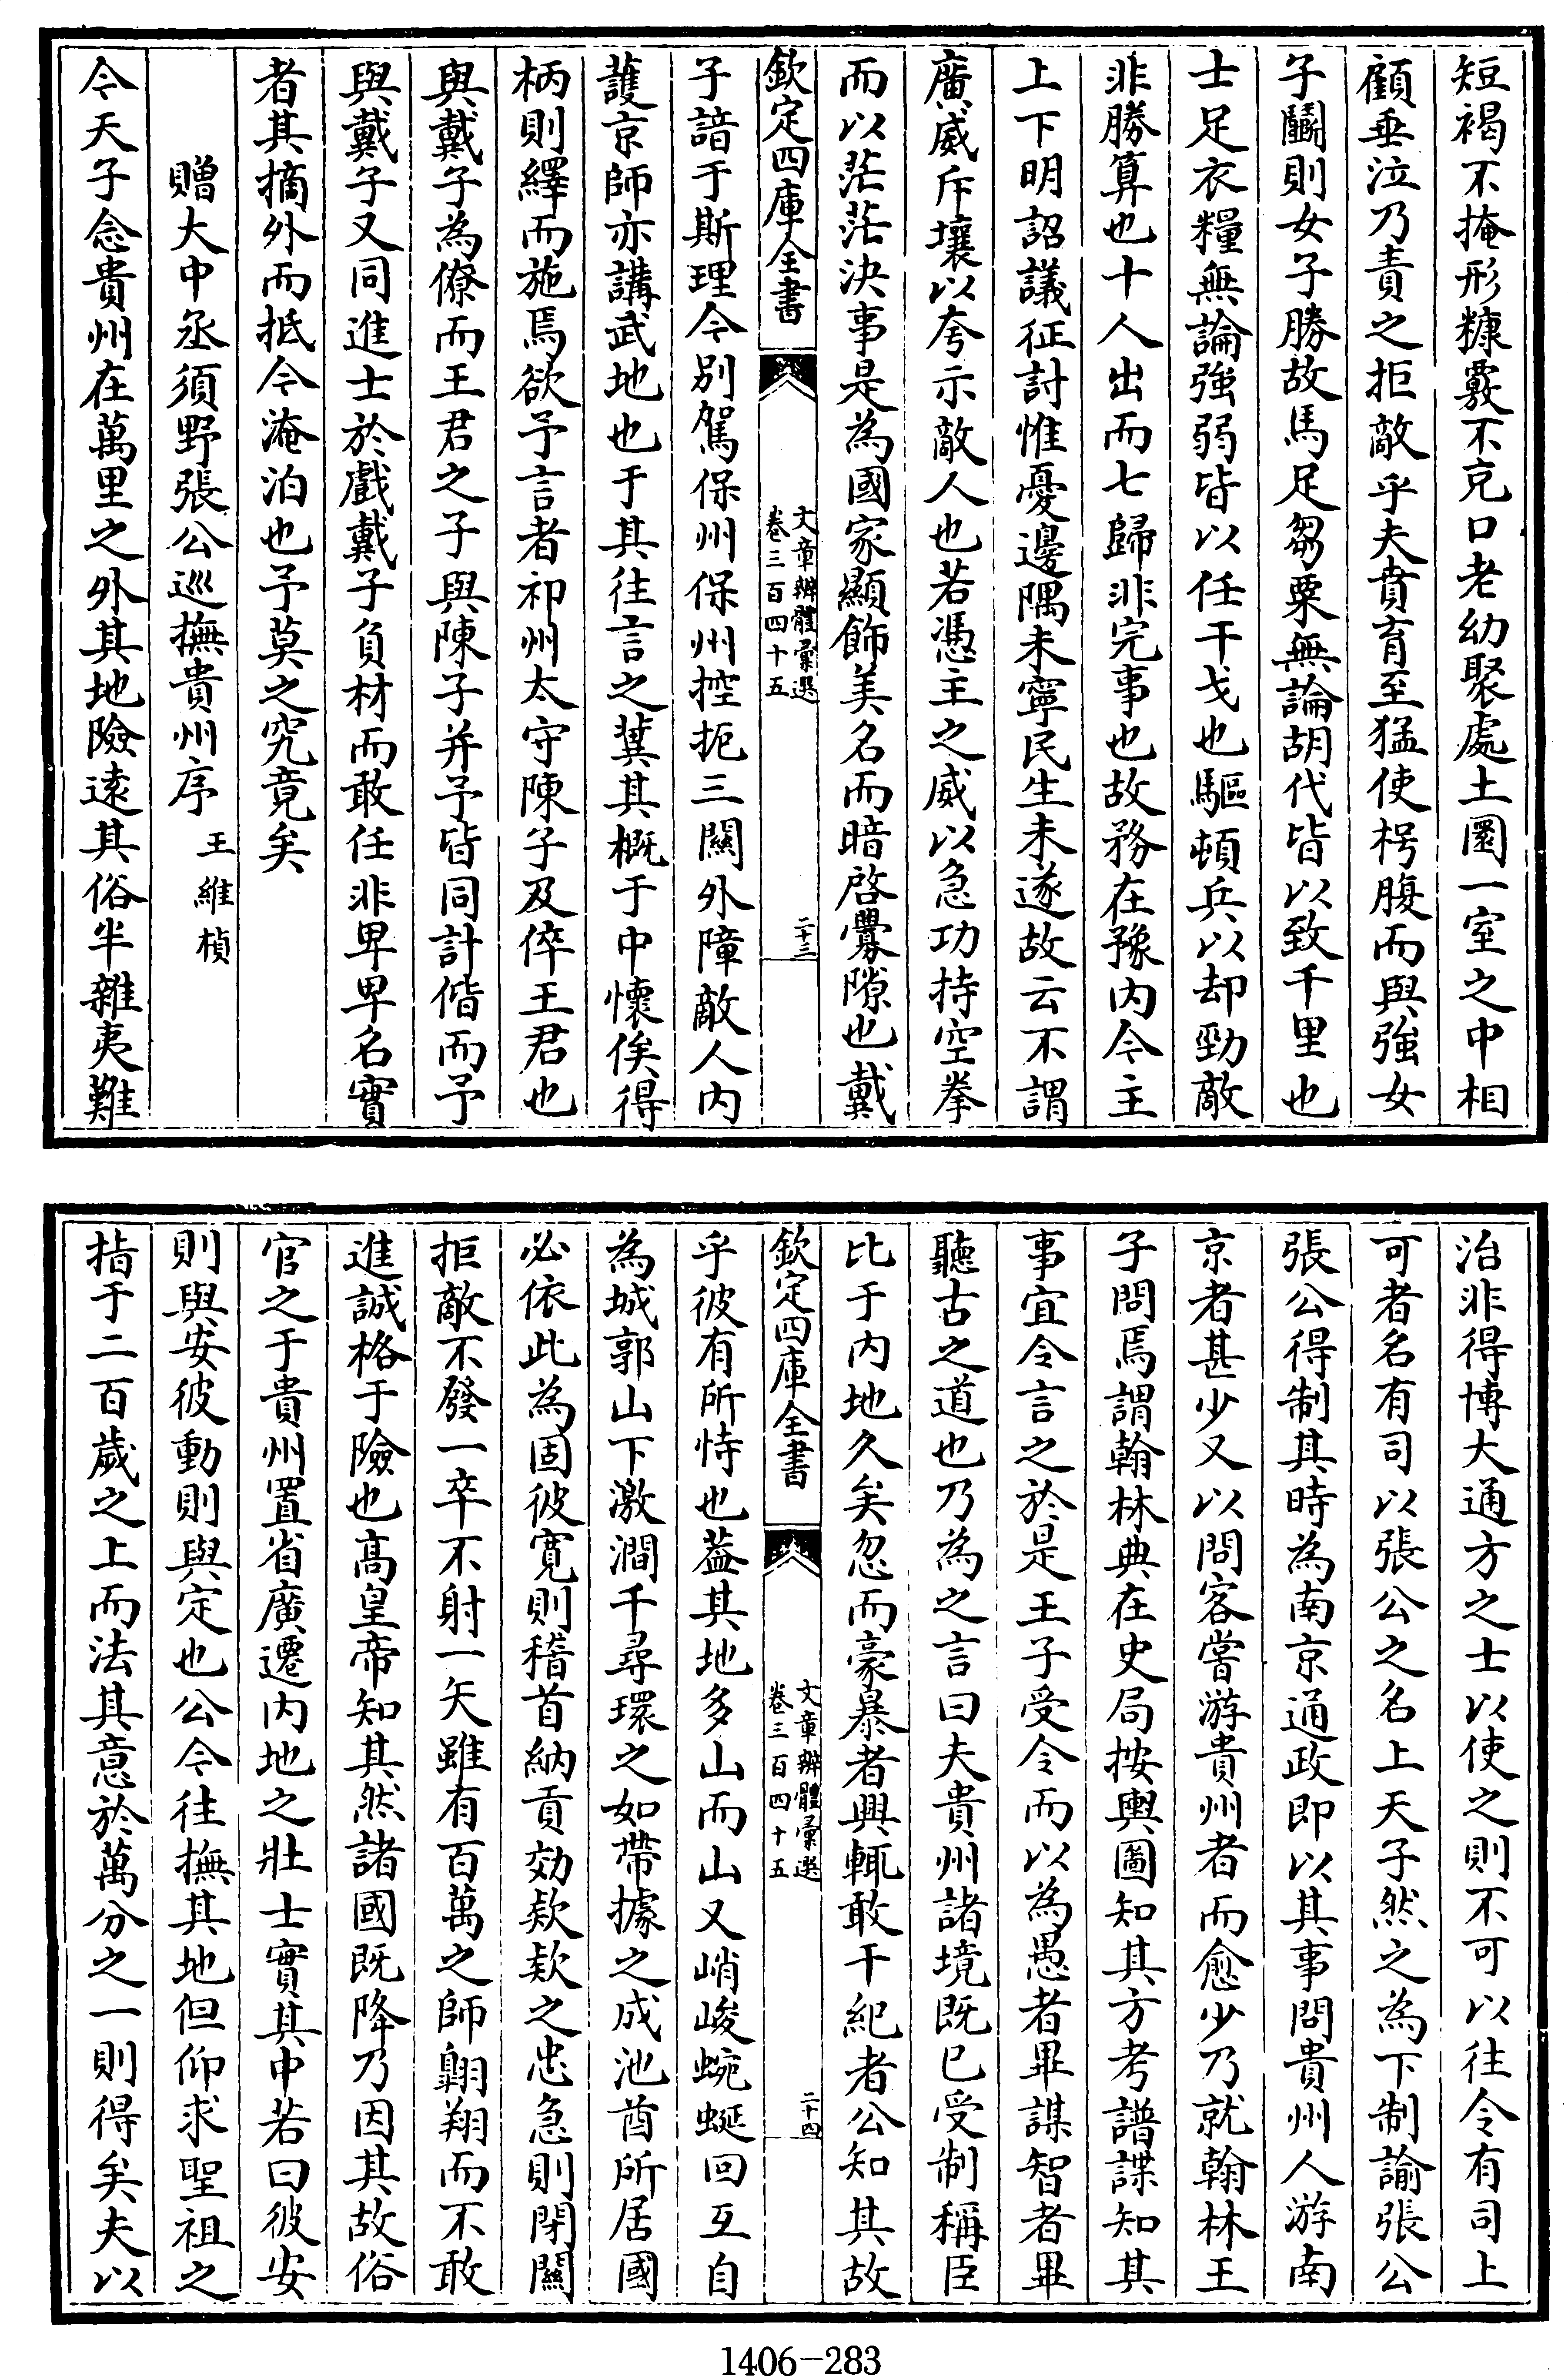 短褐不掩形糠覈不克口老幼聚處土圂一室之中相
顧垂泣乃責之拒敵乎夫賁育至猛使枵腹而與強女
子鬬則女子勝故馬足芻粟無論胡代皆以致千里也
士足衣糧無論強弱皆以任干戈也驅頓兵以却勁敵
非勝算也十人出而七歸非完事也故務在豫内今主
上下明詔議征討惟憂邊隅未寧民生未遂故云不謂
廣威斥壤以夸示敵人也若憑主之威以急功持空拳
而以茫茫決事是為國家顯飾美名而暗啓釁隙也戴
欽定四庫全書
文章辨體彙選
卷三百四十五
二十三
子諳于斯理今别駕保州保州控扼三關外障敵人内
護京師亦講武地也于其往言之冀其概于中懷俟得
柄則繹而施焉欲予言者祁州太守陳子及倅王君也
與戴子為僚而王君之子與陳子并予皆同計偕而予
與戴子又同進士於戲戴子負材而敢任非卑卑名實
者其摘外而抵今淹泊也予莫之究竟矣
贈大中丞須野張公巡撫貴州序 王維楨
今天子念貴州在萬里之外其地險逺其俗半雜夷難
治非得博大通方之士以使之則不可以往令有司上
可者名有司以張公之名上天子然之為下制諭張公
張公得制其時為南京通政即以其事問貴州人游南
京者甚少又以問客嘗游貴州者而愈少乃就翰林王
子問焉謂翰林典在史局按輿圖知其方考譜諜知其
事宜令言之於是王子受令而以為愚者畢謀智者畢
聽古之道也乃為之言曰夫貴州諸境既已受制稱臣
比于内地久矣忽而豪暴者興輒敢干紀者公知其故
欽定四庫全書
文章辨體彙選
卷三百四十五
二十四
乎彼有所恃也葢其地多山而山又峭峻蜿蜒回互自
為城郭山下激澗千尋環之如帶據之成池酋所居國
必依此為固彼寛則稽首納貢効欵欵之忠急則閉關
拒敵不發一卒不射一矢雖有百萬之師翺翔而不敢
進誠格于險也髙皇帝知其然諸國既降乃因其故俗
官之于貴州置省廣遷内地之壯士實其中若曰彼安
則與安彼動則與定也公今往撫其地但仰求聖祖之
指于二百歲之上而法其意於萬分之一則得矣夫以
1406-283